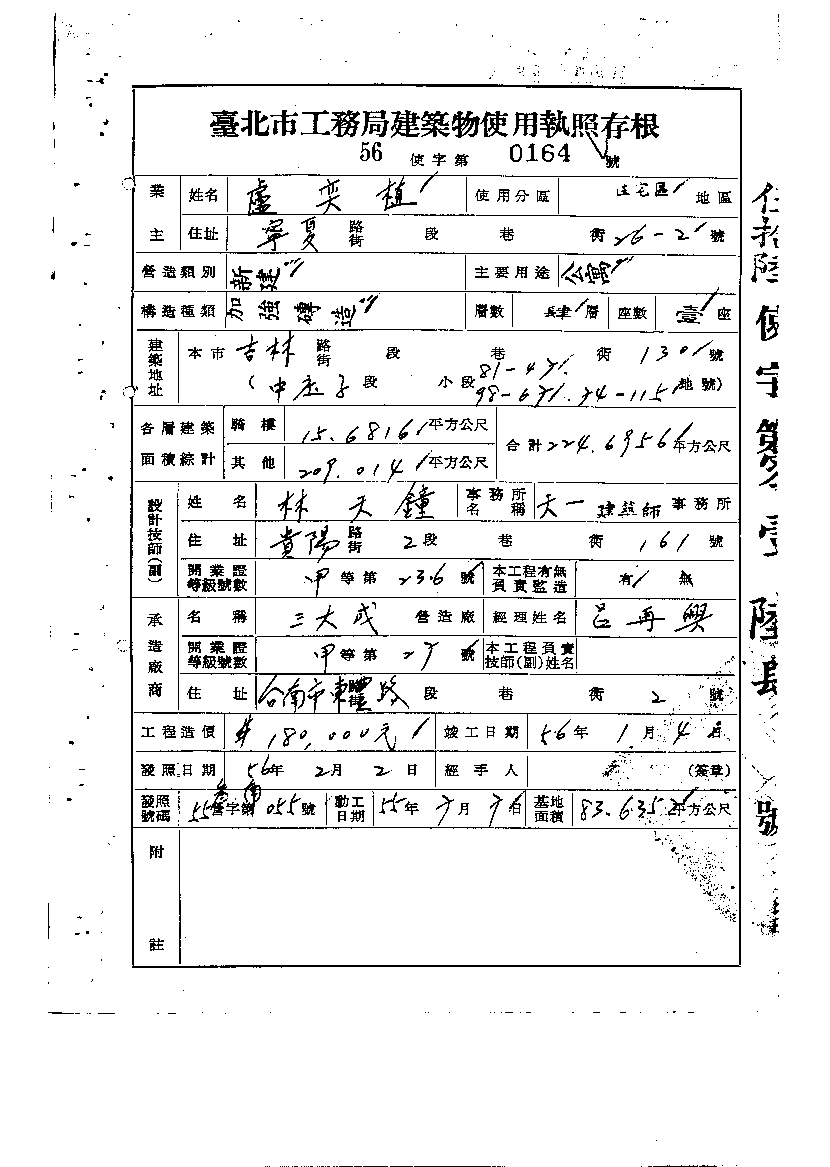 臺北市工務局建築物使用執照存根
56 使字第 0164 號
業主 姓名 盧奕植 使用分區 住宅區 地區
住址 寧夏 路街 段 巷 街 26-2 號
營造類別 新建 主要用途 公寓
構造種類 加強磚造 層數 肆層 座數 壹座
建築地址 本市 吉林 路街 段 巷 街 130 號
(中庄子段 小段 81-47. 98-67. 74-115 地號)
各層建築面積綜計 騎樓 15.6816 平方公尺 合計 224.6956 平方公尺
其他 209.014 平方公尺
設計技師(副) 姓名 林天鐘 事務所名稱 天一建筑師事務所
住址 貴陽 路街 2段 巷 街 161 號
開業證等級號數 甲等第236號 本工程有無負責監造 有 無
承造廠商 名稱 三大成 營造廠 經理姓名 呂再興
開業證等級號數 甲等第27號 本工程負責技師(副)姓名
住址 台南市東豐路 段 巷 街 2 號
工程造價 180,000元 竣工日期 56年1月4日
發照日期 56年2月2日 經手人 (簽章)
發照號碼 55營字第055號 動工日期 55年7月76日 基地面積 83.6352平方公尺
附註
伍拾陸使字第零壹陸肆號